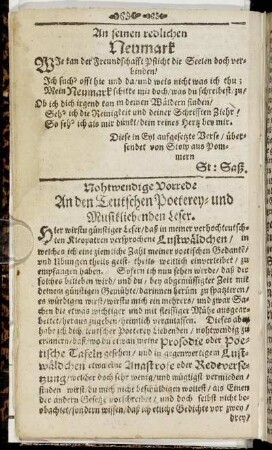 An seinen redlichen
Neumark
WJe kan der Freundschafft Pflicht die Seelen doch ver-
binden!
Jch such' offt hie und da/und weis nicht was ich thu;
Mein Neumark schikke mir doch/was du schreibest zu/
Ob ich dich irgend kan in deinen Wäldern finden/
Seh' ich die Reinigkeit und deiner Schrifften Ziehr/
So seh' ich als mir dünkt/dein reines Herz bey mir.
Diese in Eyl aufgesetzte Verse/ über-
sendet von Stolp aus Pom-
mern
St: Saß.
Nohtwendige Vorrede
An den Teutschen Poeterey- und
Musikliebenden Leser.
Hier wirstu günstiger Leser/daß in meiner verhochteutsch-
ten Kleopatren versprochene Lustwäldchen/ in
welches ich eine ziemliche Zahl meiner poetischen Gedanken
und Übungen theils geist- theils weltlich einverleibet/ zu
empfangen haben. Sofern ich nun sehen werde/ daß der
es würdigen wirst/wirstu mich ein mehrers/ und zwar Sa-
chen die etwas wichtiger und mit fleissiger Mühe ausgear-
beitet/heraus zugeben/ veranlassen. Dieses aber
habe ich dich teutscher Poeterey Liebenden/ nohtwendig zu
erinnern/daß/wo du etwan meine Prosodie oder Poe-
tische Tafeln gesehen/ und in gegenwertigem Lust-
wäldchen etwa eine Anastrofe oder Redeverse-
tzung/welcher doch sehr wenig/und mügligst vermieden/
finden wirst/du mich nicht beschüldigen wollest/ als Einen
der andern Gesetze vorschreibet/ und doch selbst nicht be-
obachtet/sondern wissen/daß ich etliche Gedichte vor zwey/
drey/